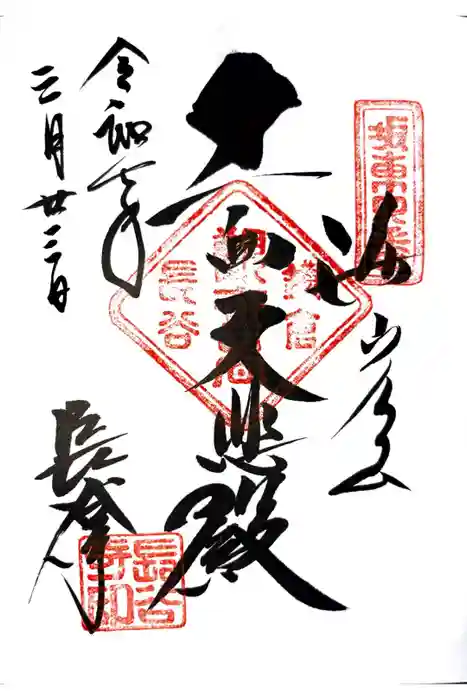 坂東四番
海光山
十一面大悲殿
鎌倉
長谷
令和七年
三月廿二日
長谷寺
長谷寺印